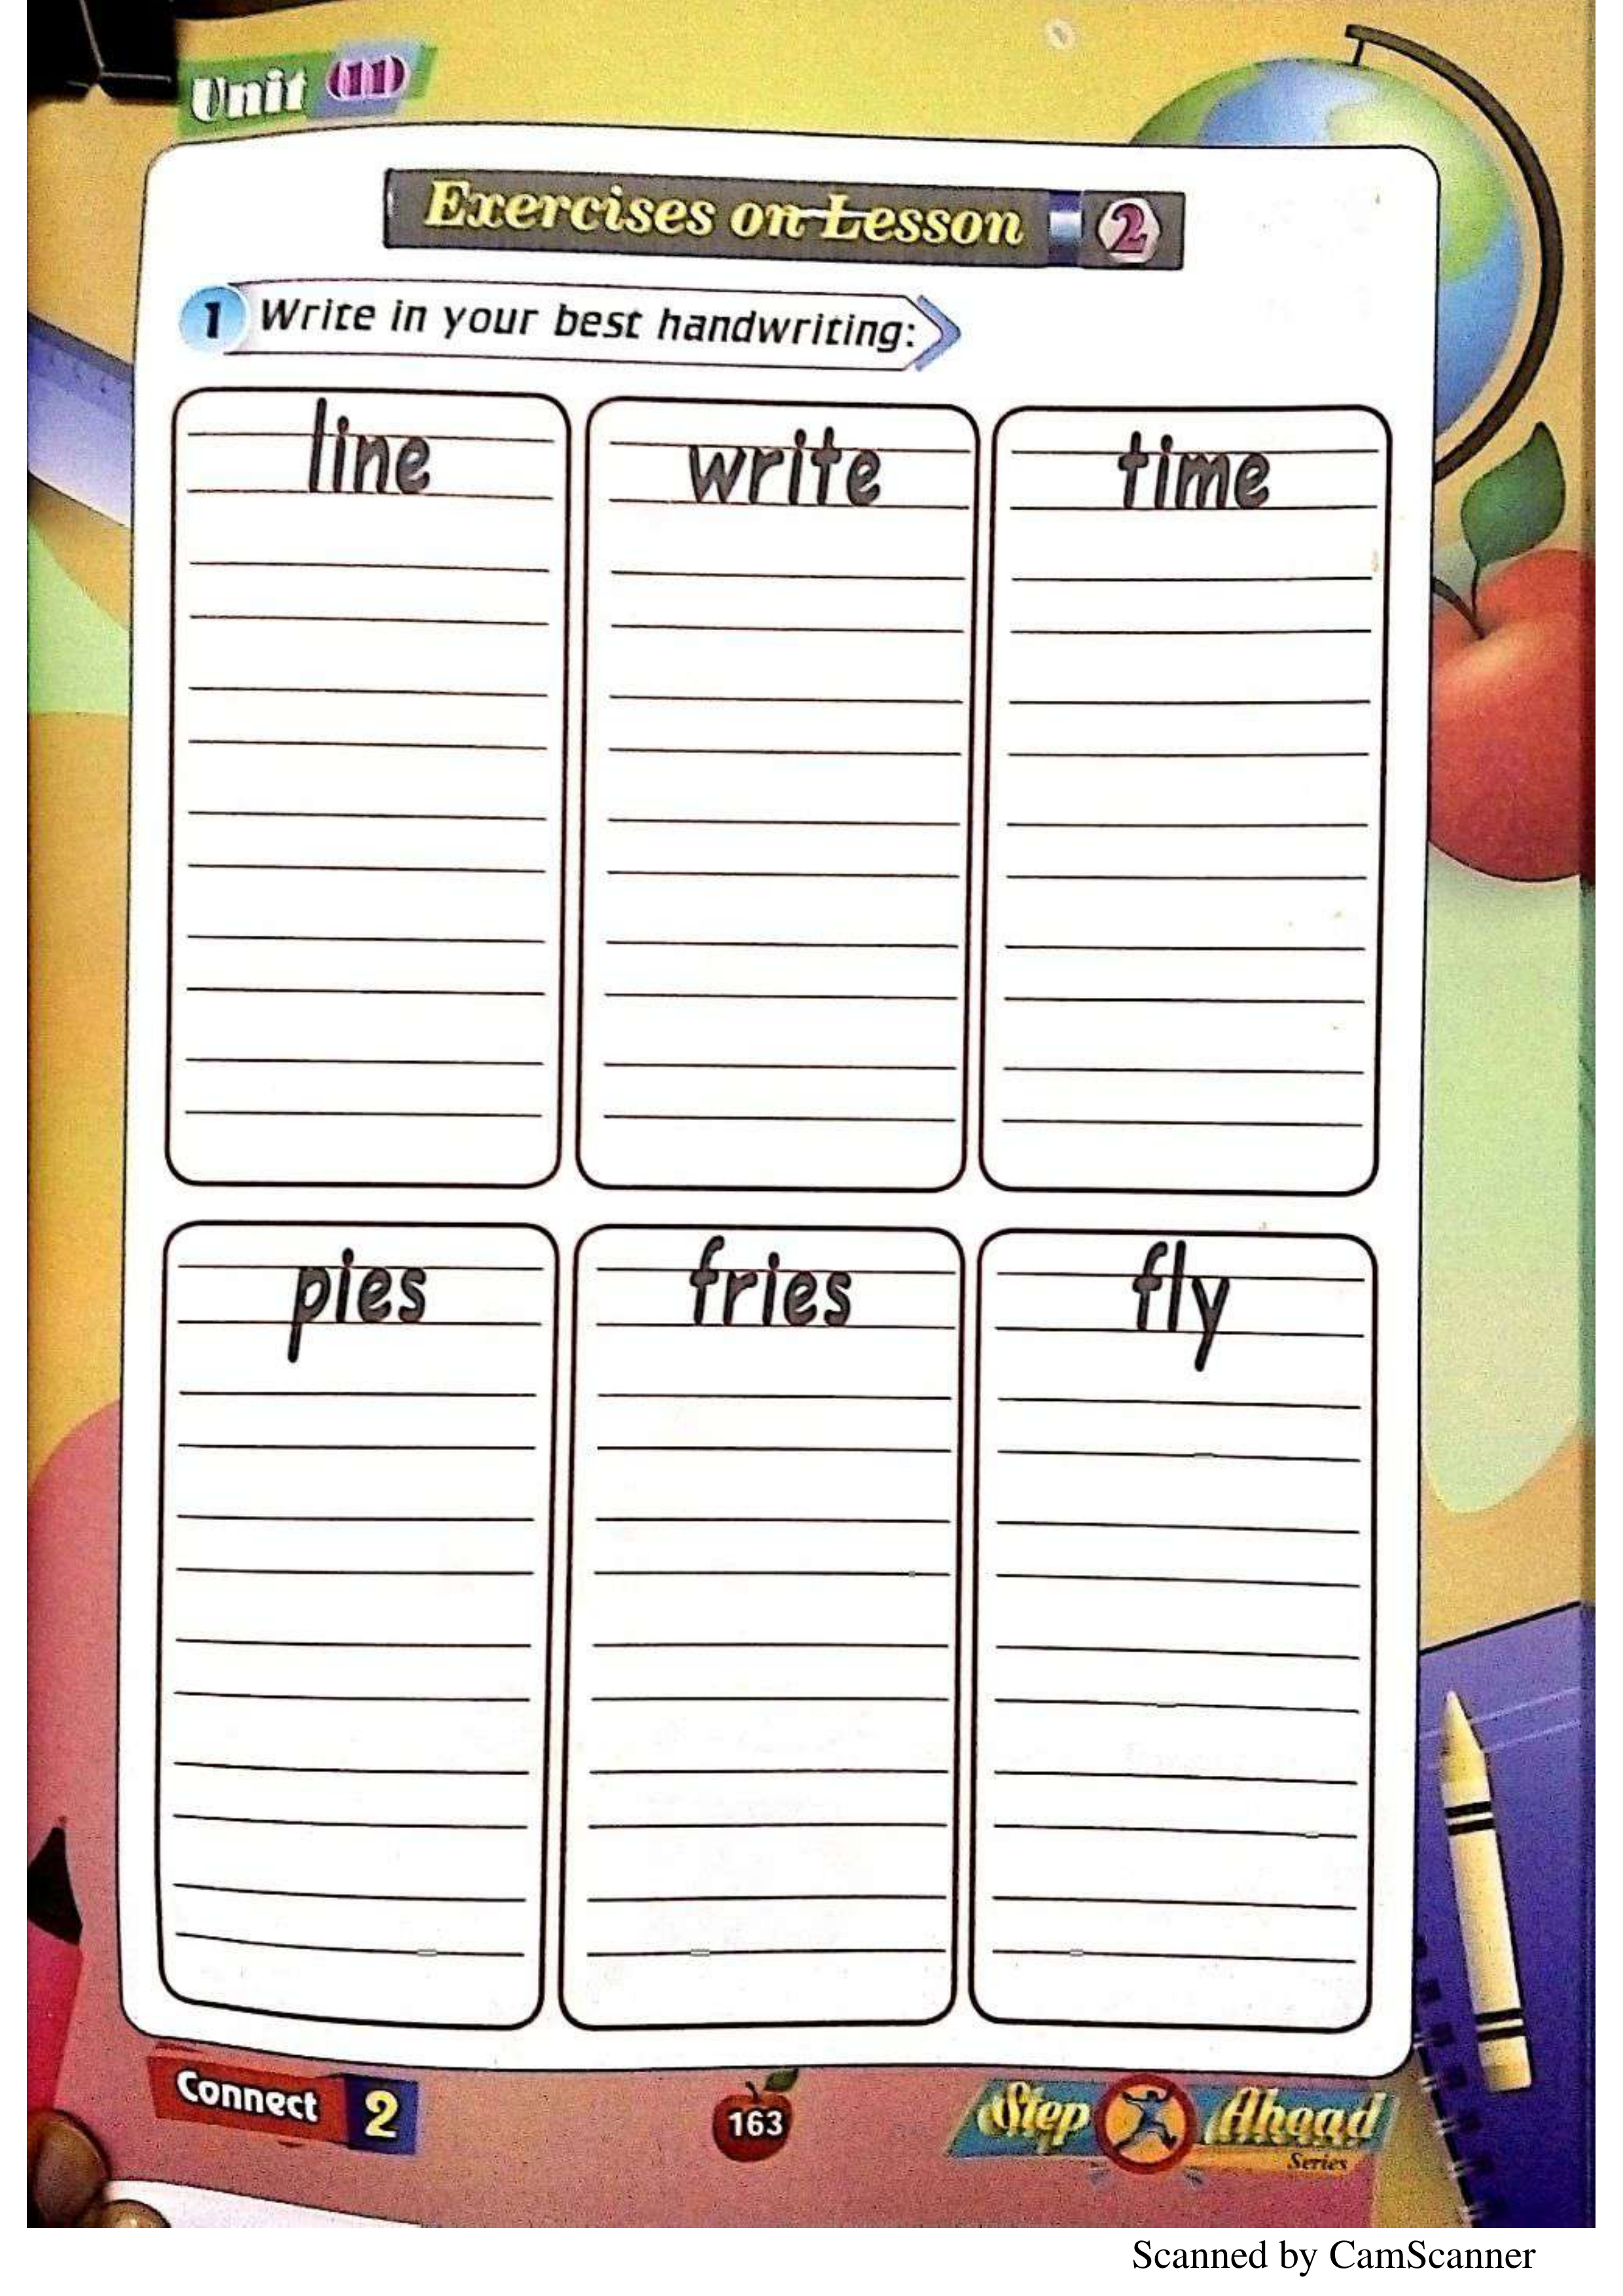 Unit (11)
Exercises on Lesson 2
1 Write in your best handwriting:
line write time
pies fries fly
Connect 2
163
Step Ahead
Series
Scanned by CamScanner